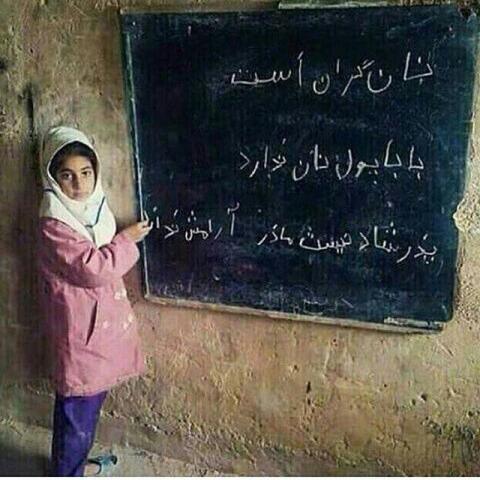 نان گران است
بابا پول نان ندارد
پدر شاد نیست مادر آرامش ندارد